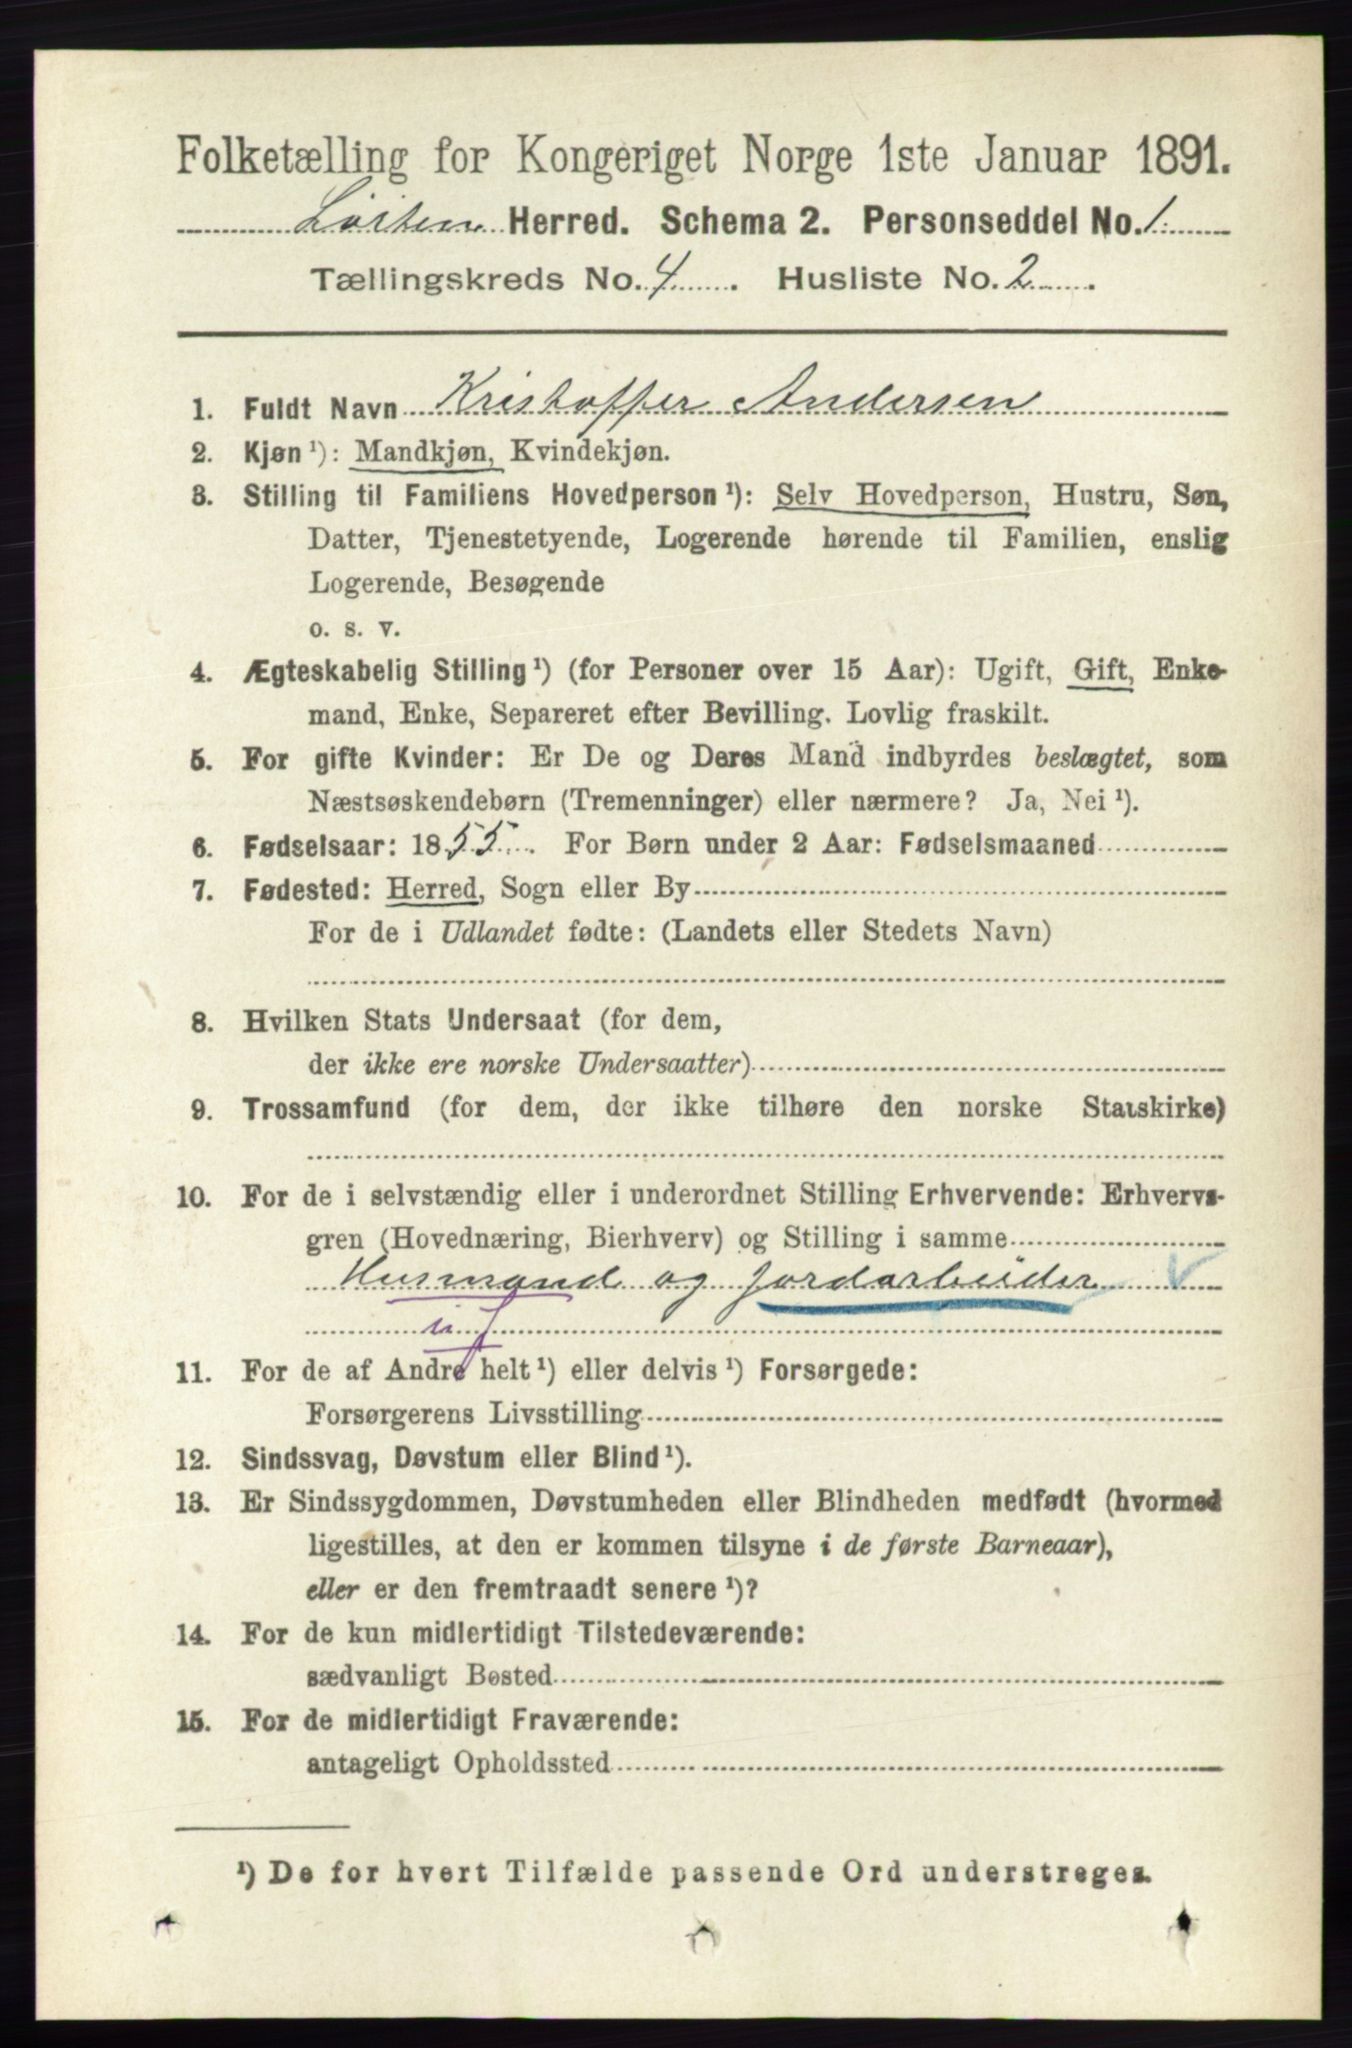 Folketælling for Kongeriget Norge 1ste Januar 1891.
Løiten Herred. Schema 2. Personseddel No. 1
Tællingskreds No. 4. Husliste No. 2.
1. Fuldt Navn Kristoffer Andersen
2. Kjøn ¹): Mandkjøn, Kvindekjøn.
3. Stilling til Familiens Hovedperson ¹): Selv Hovedperson, Hustru, Søn,
Datter, Tjenestetyende, Logerende hørende til Familien, enslig
Logerende, Besøgende
o. s. v.
4. Ægteskabelig Stilling ¹) (for Personer over 15 Aar): Ugift, Gift, Enke-
mand, Enke, Separeret efter Bevilling. Lovlig fraskilt.
5. For gifte Kvinder: Er De og Deres Mand indbyrdes beslægtet, som
Næstsøskendebørn (Tremenninger) eller nærmere? Ja, Nei ¹).
6. Fødselsaar: 1855. For Børn under 2 Aar: Fødselsmaaned
7. Fødested: Herred, Sogn eller By
For de i Udlandet fødte: (Landets eller Stedets Navn)
8. Hvilken Stats Undersaat (for dem,
der ikke ere norske Undersaatter)
9. Trossamfund (for dem, der ikke tilhøre den norske Statskirke)
10. For de i selvstændig eller i underordnet Stilling Erhvervende: Erhvervs-
gren (Hovednæring, Bierhverv) og Stilling i samme
Husmand og Jordarbeider
11. For de af Andre helt ¹) eller delvis ¹) Forsørgede:
Forsørgerens Livsstilling
12. Sindssvag, Døvstum eller Blind ¹).
13. Er Sindssygdommen, Døvstumheden eller Blindheden medfødt (hvormed
ligestilles, at den er kommen tilsyne i de første Barneaar),
eller er den fremtraadt senere ¹)?
14. For de kun midlertidigt Tilstedeværende:
sædvanligt Bosted
15. For de midlertidigt Fraværende:
antageligt Opholdssted
¹) De for hvert Tilfælde passende Ord understreges.